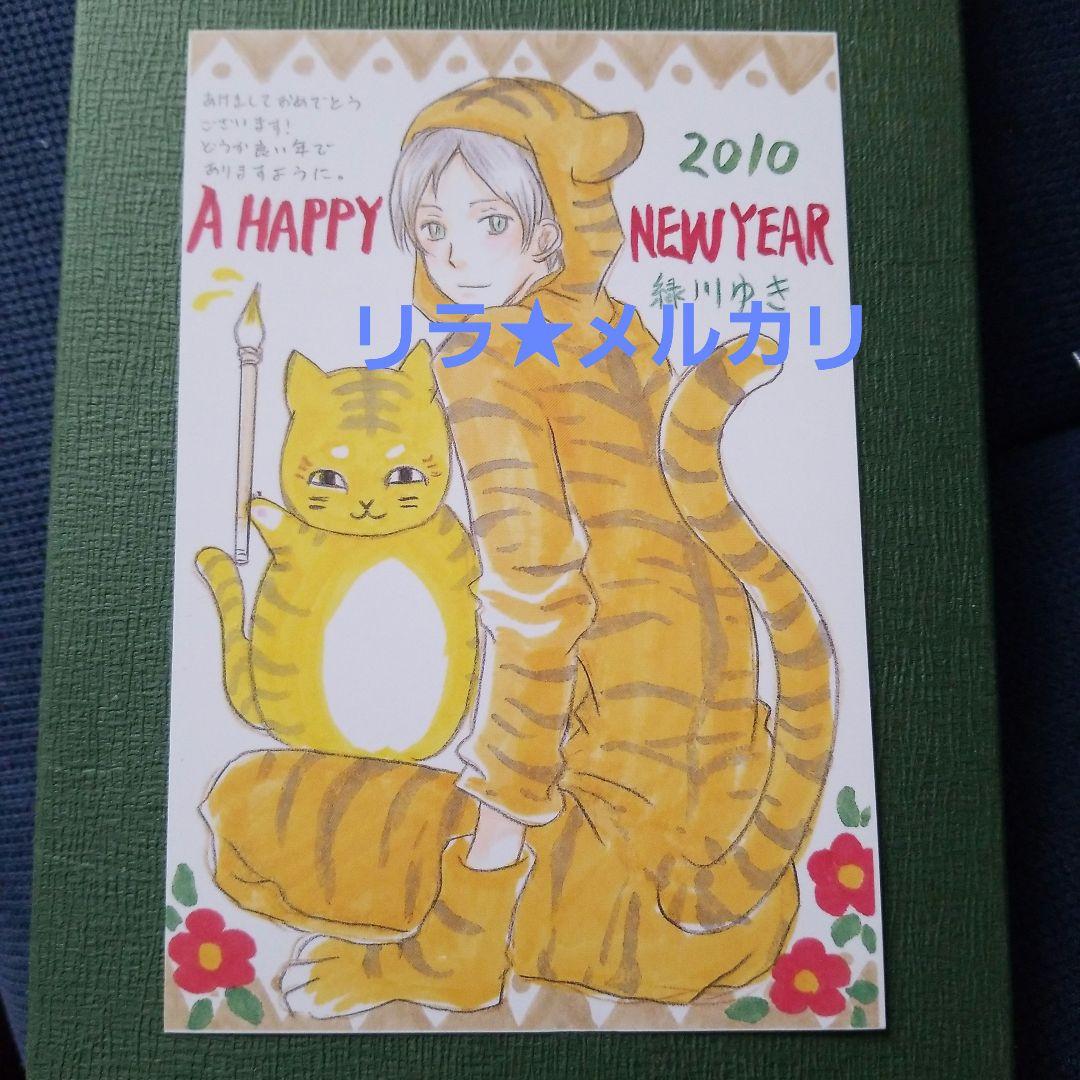 あけましておめでとう
ございます!
どうか良い年で
ありますように。
2010
A HAPPY NEW YEAR
緑川ゆき
リラ★メルカリ